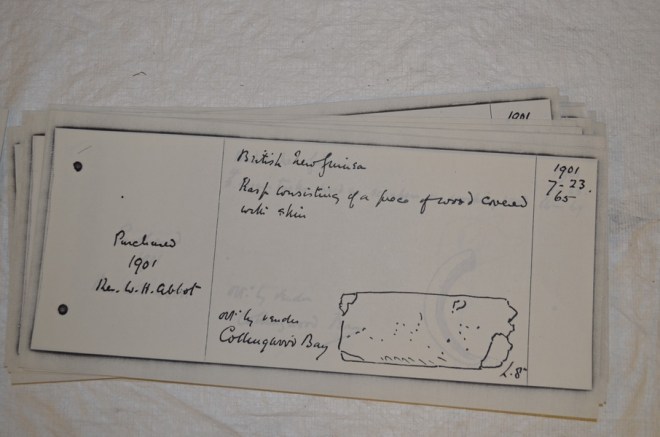 1901
British New Guinea
1901
7-23.
65
Rasp consisting of a piece of wood covered
with skin
Purchased
1901
Rev. W. H. Abbot
by vendor
Collingwood Bay
L. 8"